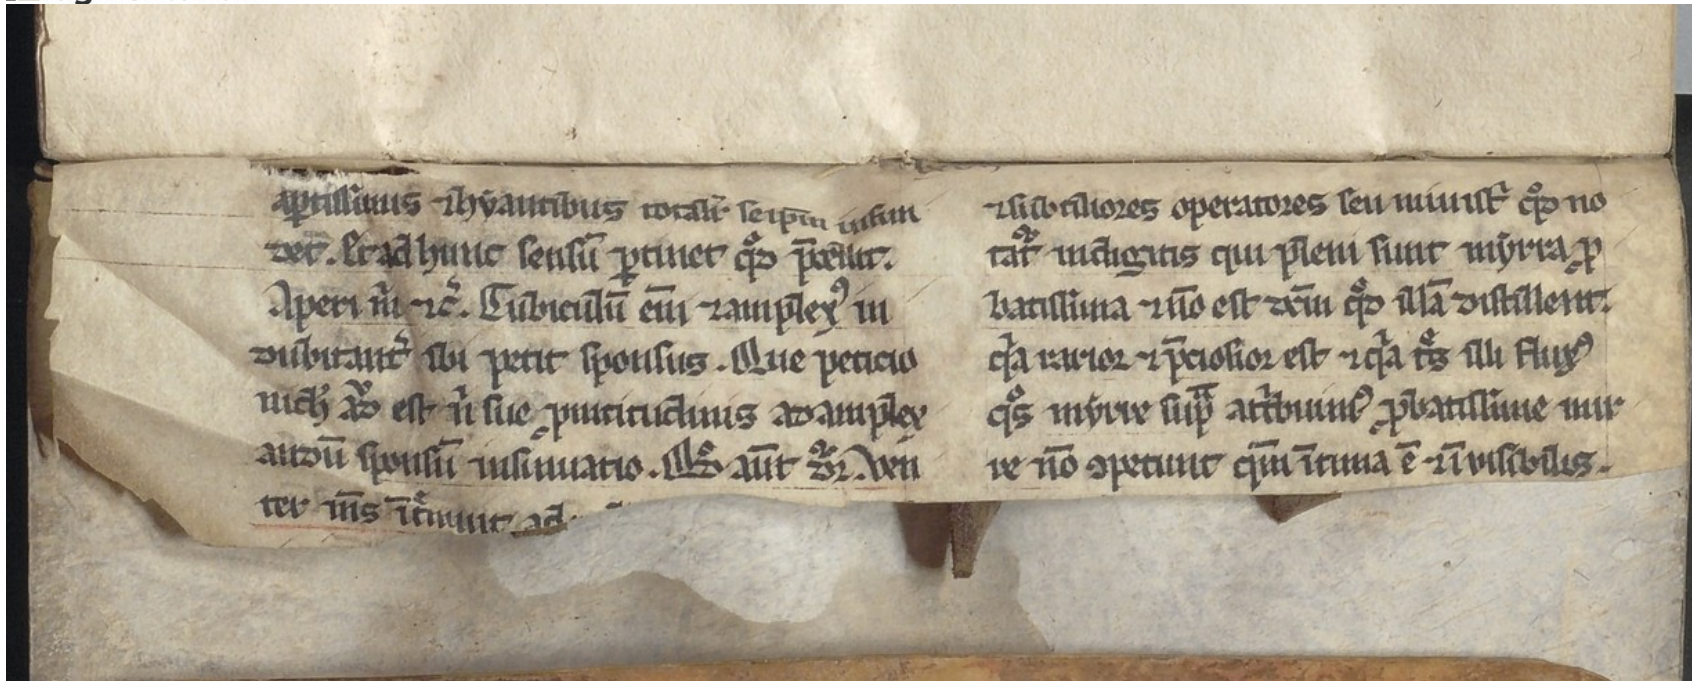 aptissimis ⁊ hyantibus totalit̃ seip̃m infun
det̃. Et ad hunc sensū ꝑtinet qͦd p̃cedit.
Aperi m̃ ⁊c̃. Cubiculū em̃ ⁊ amplexꝰ in
dubitant̃ sibi petit sponsus. Que peticio
est ñ sue ꝓmtitudinis ad amplex
andū sponsū insinuatio. Qͦd aũt dr̃. Ven
ter m̃s ĩtͥmuit ad
⁊ subtiliores operatores seu minist̃ qͦd no
tat̃ in digitis qui pleni sunt myrra ꝓ
batissima ⁊ nõ est dc̃m qͦd illã distillent.
qͥa rarior ⁊ p̃ciosior est ⁊ qͥa tͦs illi fluxꝰ
qͦs myrre sup̃ at̃buimꝰ ꝓbatissime mir
re nõ ꝯpetunt qm̃ ĩtima ẽ ⁊ ñ visibilis.